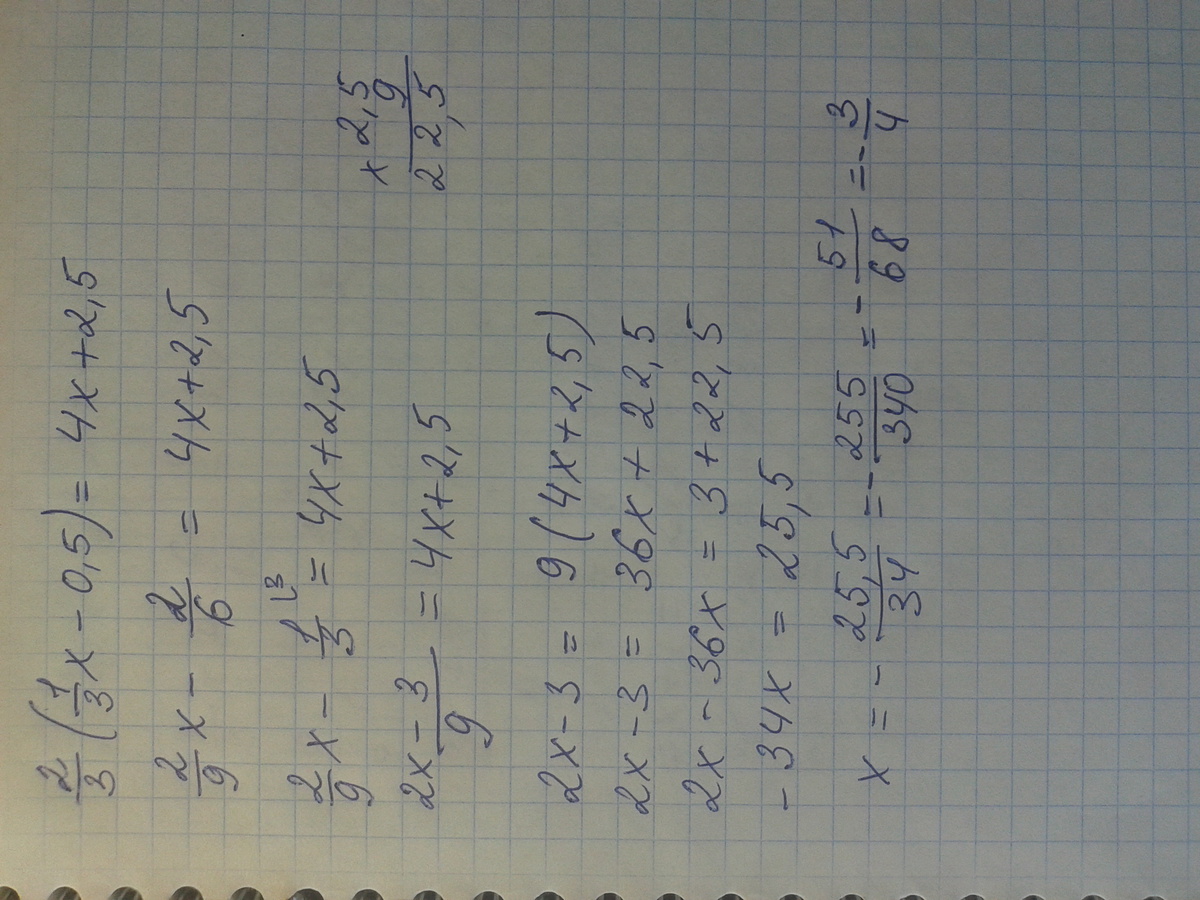 2/3 (1/3 x - 0,5) = 4x + 2,5
2/9 x - 2/6 = 4x + 2,5
2/9 x - 1/3 ⌊3 = 4x + 2,5
(2x - 3)/9 = 4x + 2,5
x 2,5
9
22,5
2x - 3 = 9(4x + 2,5)
2x - 3 = 36x + 22,5
2x - 36x = 3 + 22,5
- 34x = 25,5
x = - 25,5/34 = - 255/340 = - 51/68 = - 3/4